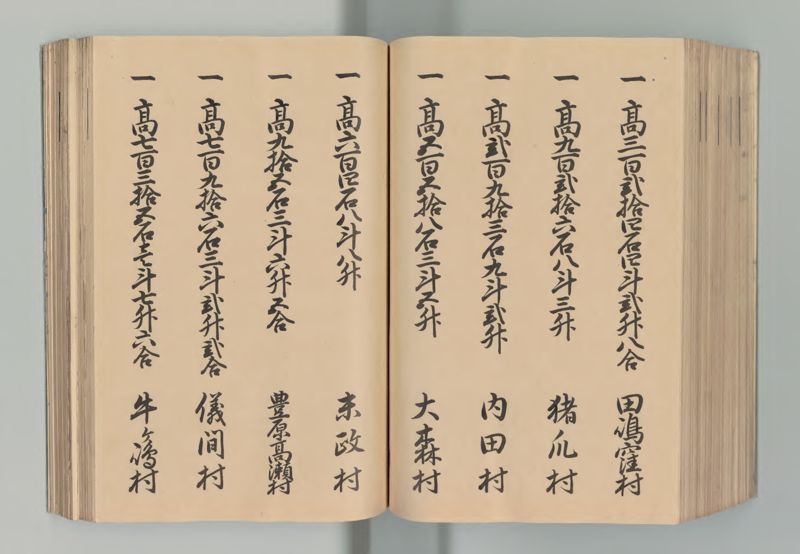 一 高三百弐拾四石四斗弐升八合 田嶋窪村
一 高九百弐拾六石八斗三升 猪爪村
一 高弐百九拾三石九斗弐升 内田村
一 高五百五拾八石三斗五升 大森村
一 高六百四石八斗八升 末政村
一 高九拾五石三斗六升五合 豊原高瀬村
一 高七百九拾六石三斗弐升弐合 儀間村
一 高七百三拾五石壱斗七升六合 牛ヶ嶋村